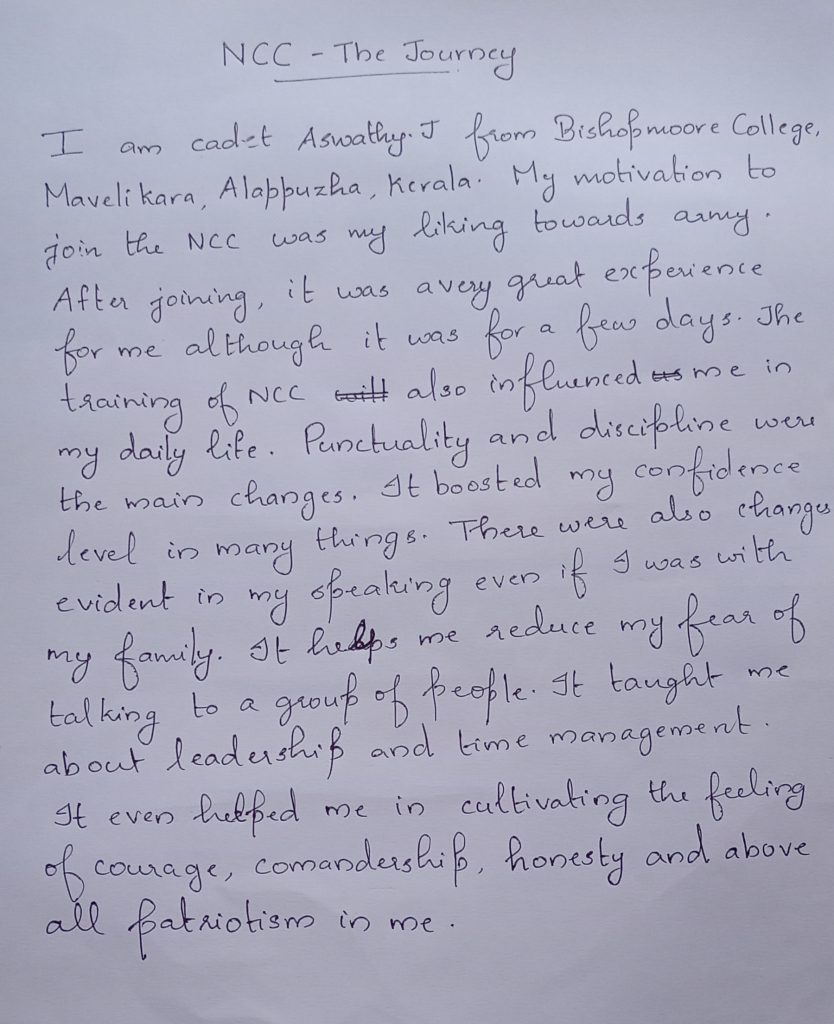 NCC - The Journey
I am cadet Aswathy. J from Bishopmoore College,
Mavelikara, Alappuzha, Kerala. My motivation to
join the NCC was my liking towards army.
After joining, it was a very great experience
for me although it was for a few days. The
training of NCC will also influenced us me in
my daily life. Punctuality and discipline were
the main changes. It boosted my confidence
level in many things. There were also changes
evident in my speaking even if I was with
my family. It helps me reduce my fear of
talking to a group of people. It taught me
about leadership and time management.
It even helped me in cultivating the feeling
of courage, comandership, honesty and above
all patriotism in me.